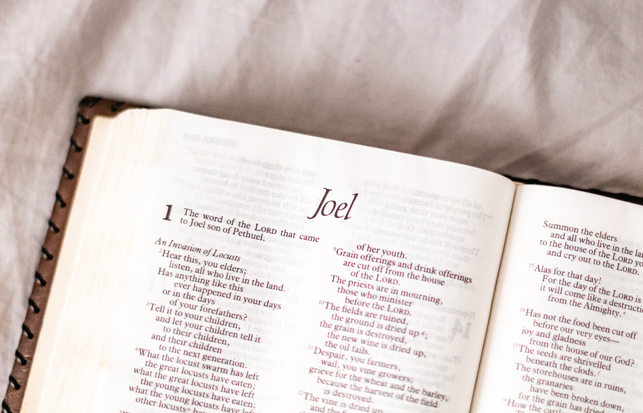 Joel
1 The word of the LORD that came
to Joel son of Pethuel.
An Invasion of Locusts
2Hear this, you elders;
listen, all who live in the land.
Has anything like this
ever happened in your days
or in the days
of your forefathers?
3Tell it to your children,
and let your children tell it
to their children,
and their children
to the next generation.
4What the locust swarm has left
the great locusts have eaten;
what the great locusts have left
the young locusts have eaten;
what the young locusts have left
other locusts have eaten.
of her youth.
9Grain offerings and drink offerings
are cut off from the house
of the LORD.
The priests are in mourning,
those who minister
before the LORD.
10The fields are ruined,
the ground is dried up;
the grain is destroyed,
the new wine is dried up,
the oil fails.
11Despair, you farmers,
wail, you vine growers;
grieve for the wheat and the barley,
because the harvest of the field
is destroyed.
12The vine is dried up
Summon the elders
and all who live in the la
to the house of the LORD yo
and cry out to the LORD.
15Alas for that day!
For the day of the LORD is
it will come like a destructio
from the Almighty.
16Has not the food been cut off
before our very eyes—
joy and gladness
from the house of our God?
17The seeds are shriveled
beneath the clods.
The storehouses are in ruins,
the granaries
have been broken down,
for the grain has dried
18How the cattle